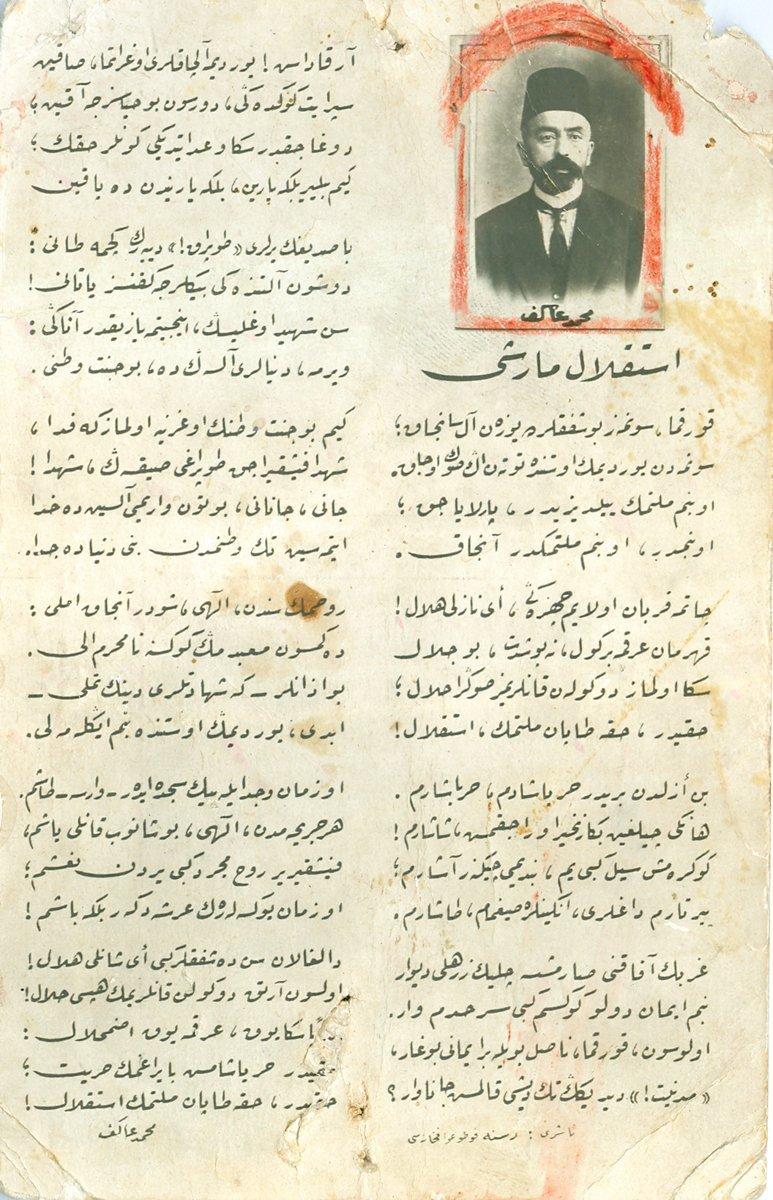 محمد عاكف
استقلال مارشى
قورقما، سونمز بو شفقلرده يوزن آل سانجاق؛
سونمه دن يورديمك اوستنده توتن اڭ صوڭ اوجاق.
او بنم ملتمك ييلديزيدر، پارلاياجق؛
او بنمدر، او بنم ملتمكدر آنجاق.
چاتمه قربان اولايم چهره ڭى، أى نازلى هلال!
قهرمان عرقمه بر كول، نه بو شدت، بو جلال
سكا اولماز دوكولن قانلريمز صوڭرا حلال؛
حقيدر، حقه طاپان ملتمك، استقلال!
بن أزلدن بريدر حر ياشادم، حر ياشارم.
هانكى چيلغين بكا زنجير اوراجقمش، شاشارم!
كوكره مش سيل كبى يم، بنديمى چيكنر آشارم؛
ييرتارم داغلرى، انكينلره صيغمام، طاشارم.
غربك آفاقنى صارمشسه چليك زرهلى ديوار
بنم ايمان دولو كوكسم كبى سرحدم وار.
اولوسون، قورقما، ناصل بويله بر ايمانى بوغار،
«مدنيت!» ديديكك تك ديشى قالمش جاناوار؟
ناشرى:
آرقاداش! يورديمه آلچاقلرى اوغراتما، صاقين
سپر ايت كوكده كى، دورسون بو حياسزجه آقين؛
دوغاجقدر سكا وعد ايتديكى كونلر حقك؛
كيم بيلير بلكه يارين، بلكه ياريندن ده ياقين
باصديغك يرلرى «طوپراق!» ديه رك كچمه طانى:
دوشون آلتنده كى بيكلرجه كفنسز ياتانى!
سن شهيد اوغليسك، اينجيتمه يازيقدر آتاكى:
ويرمه، دنيالرى آلسه ڭ ده، بو جنت وطنى.
كيم بو جنت وطنك اوغرنه اولماز كه فدا،
شهدا فيشقيراجق طوپراغى صيقسه ڭ، شهدا!
جانى، جانانى، بوتون واريمى آلسين ده خدا
ايتمه سين تك وطنمدن بنى دنياده جدا.
روحمك سندن، الهى، شودر آنجاق املى:
دكمسون معبدمك كوكسنه نامحرم الى.
بو اذانلر ـ كه شهادتلرى دينك تملى ـ
ابدى، يورديمك اوستنده بنم ايكله ملى.
او زمان وجد ايله بيك سجده ايدر ـ وارسه ـ طاشم.
هر جريحه مدن، الهى، بوشانوب قانلى ياشم،
فيشقيرير روح مجرد كبى يردن نعشم؛
او زمان يوكسله رك عرشه دكر بلكه باشم!
دالغالان سن ده شفقلر كبى أى شانلى هلال!
اولسون آرتق دوكولن قانلريمك هپسى حلال!
سكا يوق، عرقمه يوق اضمحلال:
حقيدر حر ياشامش بايراغمك حريت؛
حقيدر، حقه طاپان ملتمك استقلال!
محمد عاكف